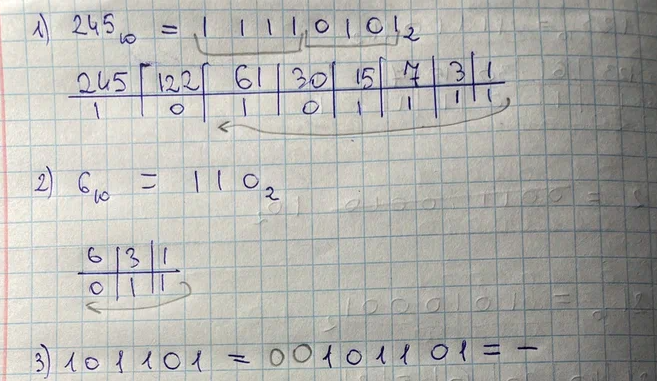 1) 245₁₀ = 11110101₂
245 | 122 | 61 | 30 | 15 | 7 | 3 | 1
1 | 0 | 1 | 0 | 1 | 1 | 1 | 1
2) 6₁₀ = 110₂
6 | 3 | 1
0 | 1 | 1
3) 101101 = 00101101 = -